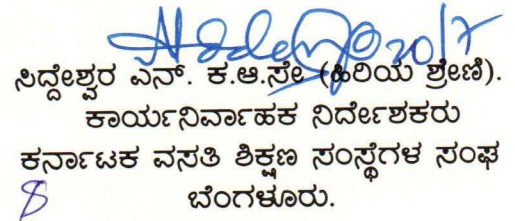 20/7
ಸಿದ್ದೇಶ್ವರ ಎನ್. ಕ.ಆ.ಸೇ (ಹಿರಿಯ ಶ್ರೇಣಿ).
ಕಾರ್ಯನಿರ್ವಾಹಕ ನಿರ್ದೇಶಕರು
ಕರ್ನಾಟಕ ವಸತಿ ಶಿಕ್ಷಣ ಸಂಸ್ಥೆಗಳ ಸಂಘ
ಬೆಂಗಳೂರು.